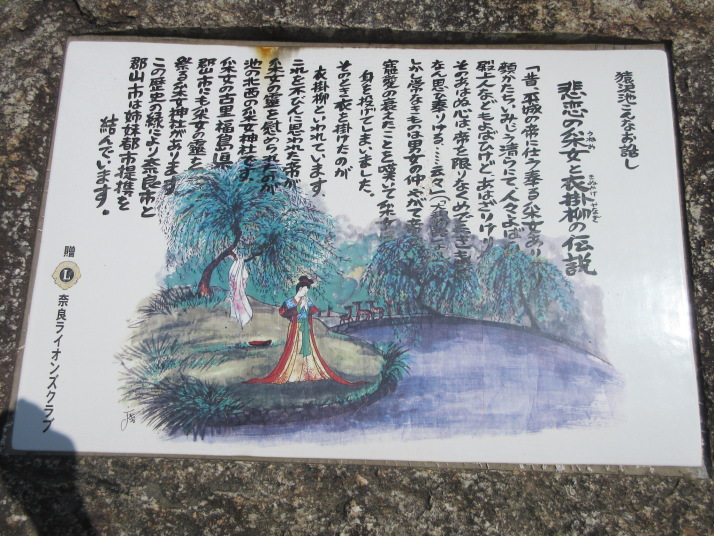 猿沢池こんなお話し
悲恋の采女と衣掛柳の伝説
うねめ
きぬかけやなぎ
「昔、平城の帝に仕う奉る采女あり
顔かたち、いみじう清らにて、人々よばひ
殿上人などもよばひけど、あはざりけり
そのあはぬ心は、帝を限りなくめでたき
なん思ひ奉りける……云々」
常なきものは男女の仲、やがて
寵愛の衰えたことを嘆いて采女
身を投げてしまいました。
そのとき衣を掛けたのが
衣掛柳といわれています。
これを不びんに思われた帝が
采女の霊を慰められたのが
池の北西の采女神社です。
采女の古里福島県
郡山市にも采女の霊を
祭る采女神社があります。
この歴史的縁により奈良市と
郡山市は姉妹都市提携を
結んでいます。
贈
L
奈良ライオンズクラブ